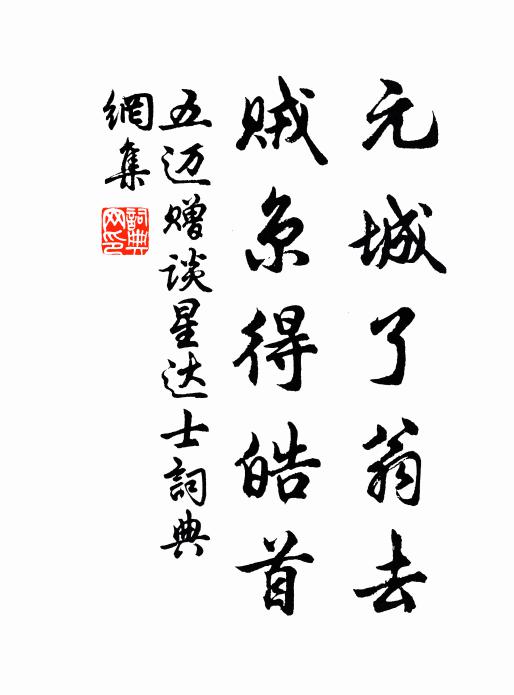 元城了翁去
贼京得皓首
五迈赠谈星达士詞典
網集
詞典
网印